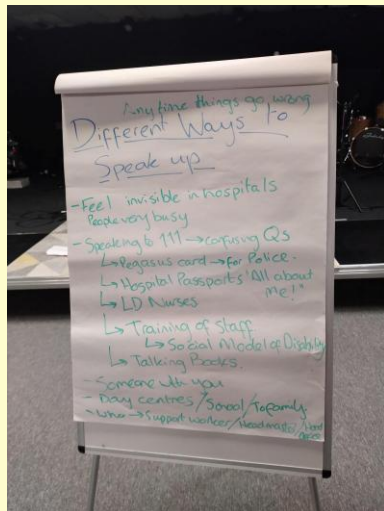 Anytime things go wrong
Different Ways to
Speak up
- Feel invisible in hospitals
People very busy
- Speaking to 111 → confusing Qs
↳ Pegasus card → for Police.
↳ Hospital Passports "All about
me!"
↳ LD Nurses
↳ Training of staff
↳ Social Model of Disability
↳ Talking Books.
- Someone with you
- Day centres / School / To family
- Who → Support worker / Headmaster /